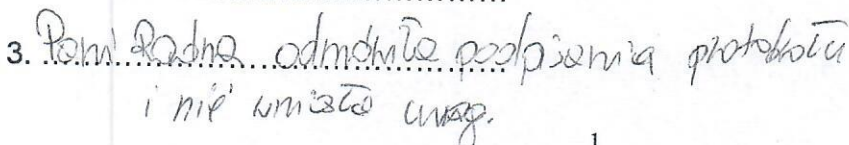 3. Pani Radna odmówiła podpisania protokołu
i nie wniosła uwag.
1